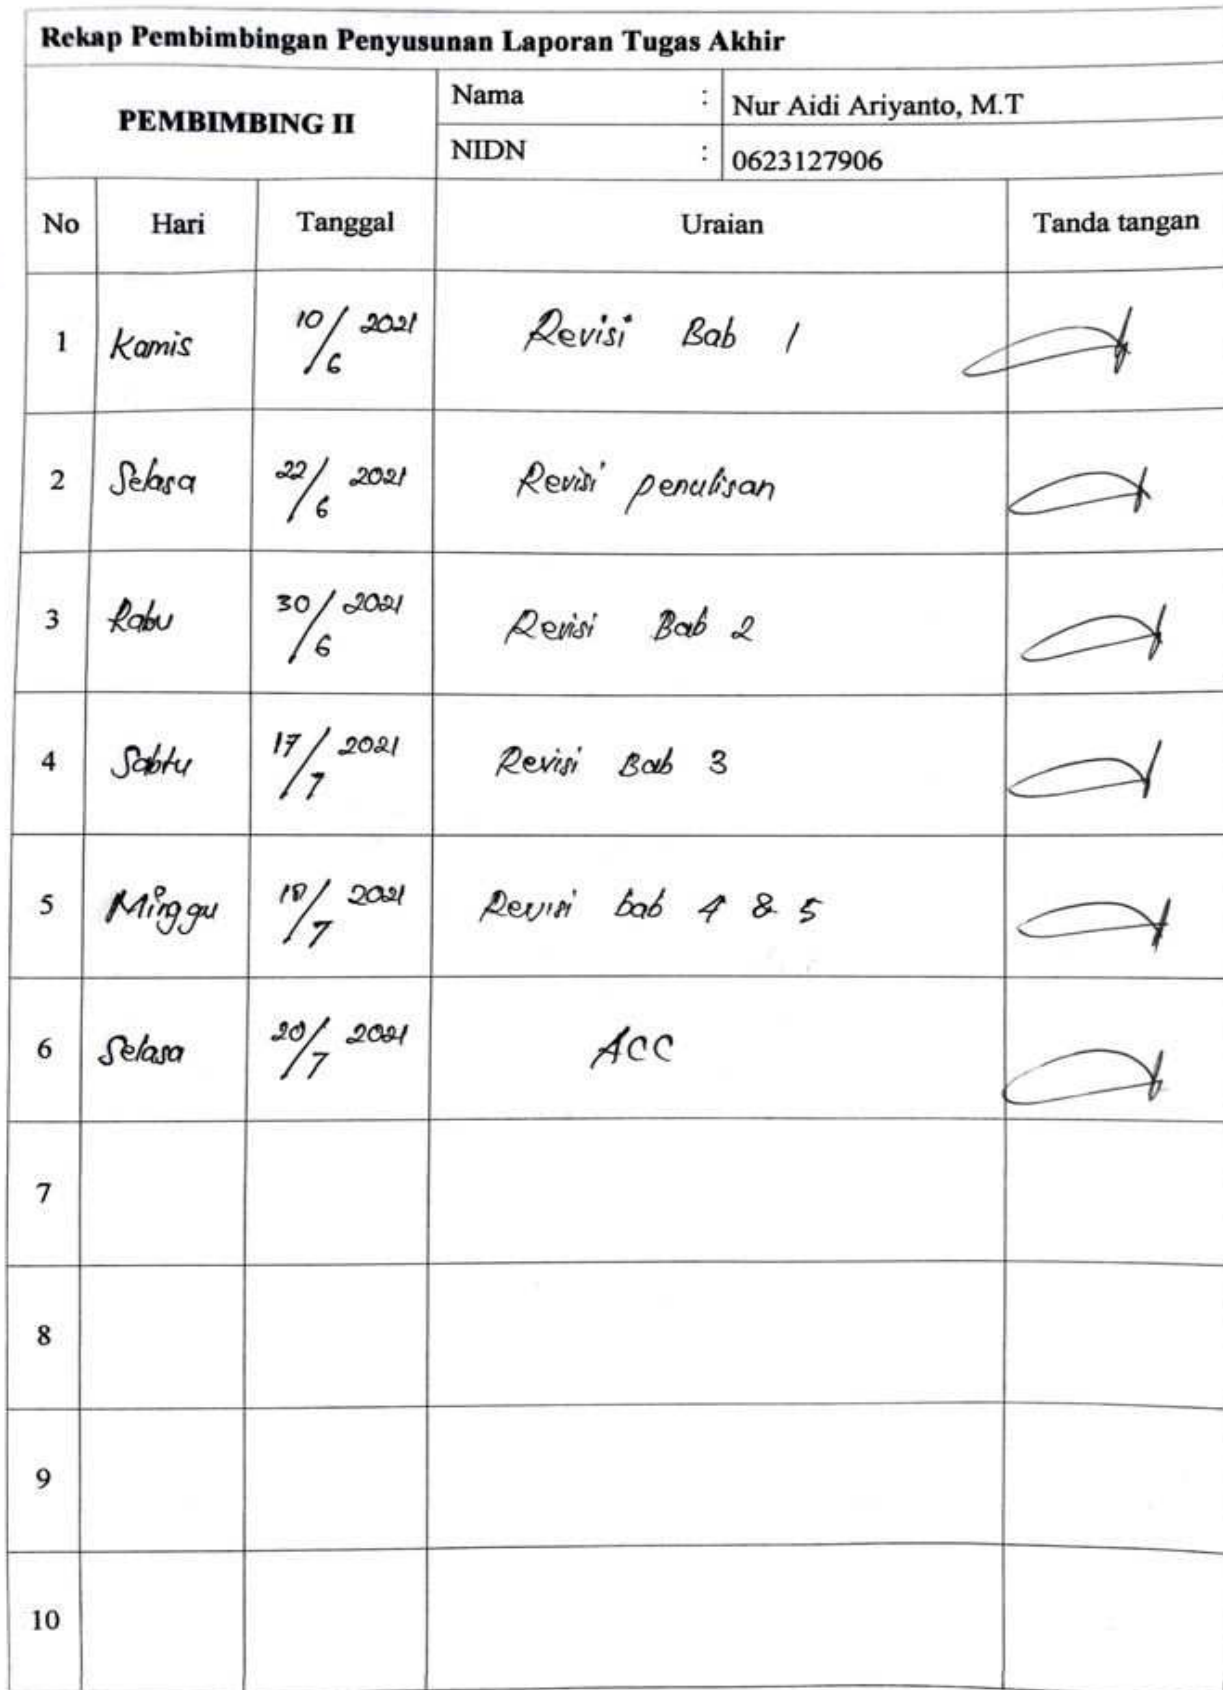 Rekap Pembimbingan Penyusunan Laporan Tugas Akhir
PEMBIMBING II
Nama : Nur Aidi Ariyanto, M.T
NIDN : 0623127906
No Hari Tanggal Uraian Tanda tangan
1 Kamis 10/6 2021 Revisi Bab 1
2 Selasa 22/6 2021 Revisi penulisan
3 Rabu 30/6 2021 Revisi Bab 2
4 Sabtu 17/7 2021 Revisi Bab 3
5 Minggu 18/7 2021 Revisi bab 4 & 5
6 Selasa 20/7 2021 ACC
7
8
9
10